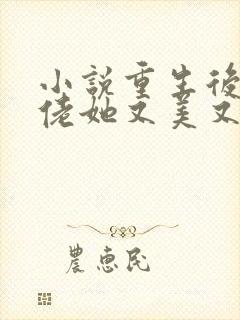 小說重生後
佬她又美又
農惠民